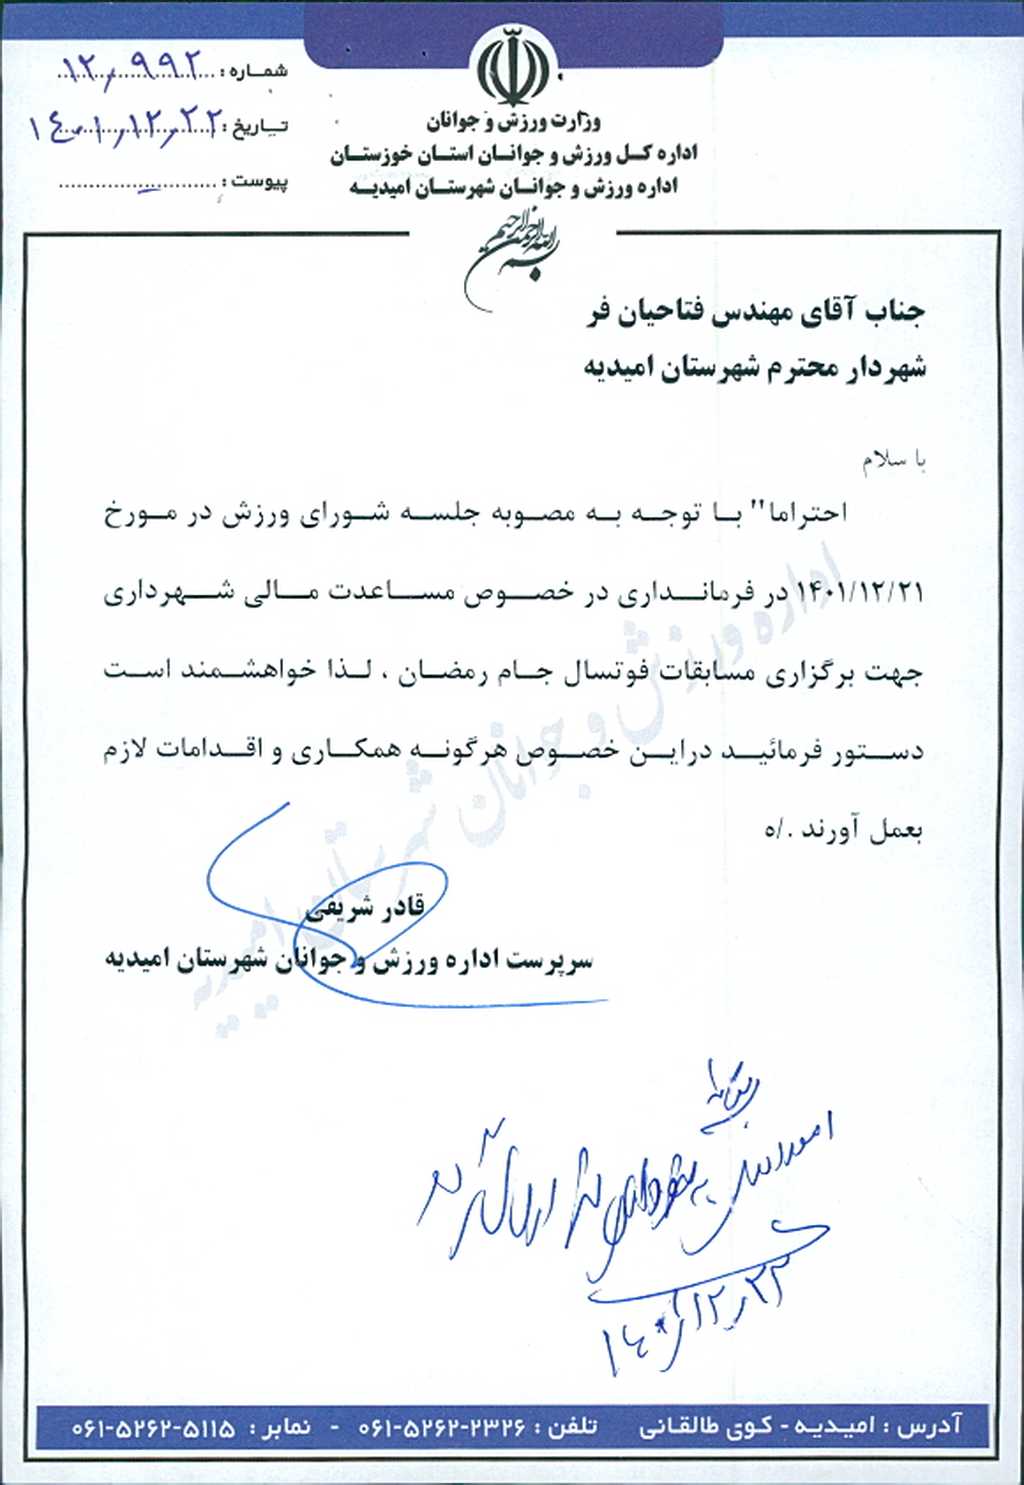 شماره : ۱۲٫۹۹۲
تاریخ : ۱۴۰۱٫۱۲٫۲۲
پیوست :
وزارت ورزش و جوانان
اداره کل ورزش و جوانان استان خوزستان
اداره ورزش و جوانان شهرستان امیدیه
بسم الله الرحمن الرحیم
جناب آقای مهندس فتاحیان فر
شهردار محترم شهرستان امیدیه
با سلام
احتراما" با توجه به مصوبه جلسه شورای ورزش در مورخ
۱۴۰۱/۱۲/۲۱ در فرمانداری در خصوص مساعدت مالی شهرداری
جهت برگزاری مسابقات فوتسال جام رمضان ، لذا خواهشمند است
دستور فرمائید دراین خصوص هرگونه همکاری و اقدامات لازم
بعمل آورند ./ه
اداره ورزش و جوانان شهرستان امیدیه
قادر شریفی
سرپرست اداره ورزش و جوانان شهرستان امیدیه
۱۴۰۱٫۱۲٫۲۲
آدرس : امیدیه - کوی طالقانی تلفن : ۲۳۲۶-۵۲۶۲-۰۶۱ - نمابر : ۵۱۱۵-۵۲۶۲-۰۶۱